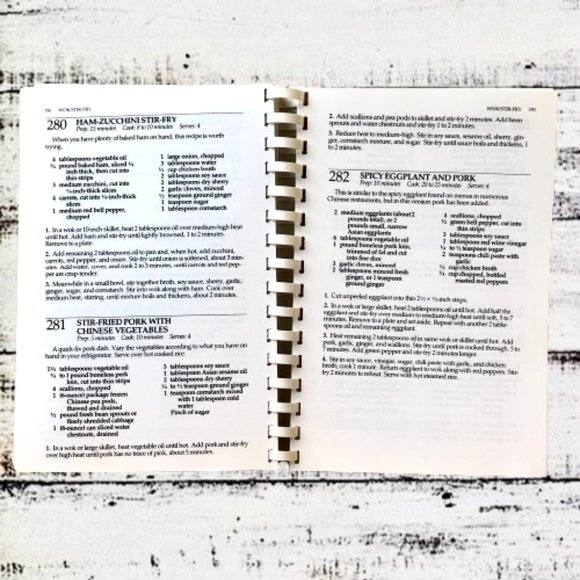 190 WOK/STIR-FRY
280 HAM-ZUCCHINI STIR-FRY
Prep: 15 minutes Cook: 8 to 10 minutes Serves: 4
When you have plenty of baked ham on hand, this recipe is worth
trying.
4 tablespoons vegetable oil
¾ pound baked ham, sliced ¼
inch thick, then cut into
thin strips
3 medium zucchini, cut into
¼-inch-thick slices
4 carrots, cut into ¼-inch-thick
slices
1 medium red bell pepper,
chopped
1 large onion, chopped
3 tablespoons water
½ cup chicken broth
2 tablespoons soy sauce
2 tablespoons dry sherry
2 garlic cloves, minced
½ teaspoon ground ginger
½ teaspoon sugar
1 tablespoon cornstarch
1. In a wok or 10-inch skillet, heat 2 tablespoons oil over medium-high heat
until hot. Add ham and stir-fry until lightly browned, 1 to 2 minutes.
Remove to a plate
2. Add remaining 2 tablespoons oil to pan and, when hot, add zucchini,
carrots, red pepper, and onion. Stir-fry until onion is softened, about 3 min-
utes. Add water, cover, and cook 2 to 3 minutes, until carrots and red pep-
per are crisp-tender.
3. Meanwhile in a small bowl, stir together broth, soy sauce, sherry, garlic,
ginger, sugar, and cornstarch. Stir into wok along with ham. Cook over
medium heat, stirring, until mixture boils and thickens, about 2 minutes.
281 STIR-FRIED PORK WITH
CHINESE VEGETABLES
Prep: 5 minutes Cook: 10 minutes Serves: 4
A quick-fix pork dish. Vary the vegetables according to what you have on
hand in your refrigerator. Serve over hot cooked rice.
1½ tablespoons vegetable oil
¾ to 1 pound boneless pork
loin, cut into thin strips
4 scallions, chopped
1 (6-ounce) package frozen
Chinese pea pods,
thawed and drained
½ pound fresh bean sprouts or
finely shredded cabbage
1 (8-ounce) can sliced water
chestnuts, drained
3 tablespoons soy sauce
1 tablespoon Asian sesame oil
2 tablespoons dry sherry
¼ to ½ teaspoon ground ginger
1 teaspoon cornstarch mixed
with 1 tablespoon cold
water
Pinch of sugar
1. In a wok or large skillet, heat vegetable oil until hot. Add pork and stir-fry
over high heat until pork has no trace of pink, about 5 minutes.
WOK/STIR-FRY 191
2. Add scallions and pea pods to skillet and stir-fry 2 minutes. Add bean
sprouts and water chestnuts and stir-fry 1 to 2 minutes.
3. Reduce heat to medium-high. Stir in soy sauce, sesame oil, sherry, gin-
ger, cornstarch mixture, and sugar. Stir-fry until sauce boils and thickens, 1
to 2 minutes.
282 SPICY EGGPLANT AND PORK
Prep: 10 minutes Cook: 20 to 25 minutes Serves: 4
This is similar to the spicy eggplant found on menus in numerous
Chinese restaurants, but in this version pork has been added.
2 medium eggplants (about 2
pounds total), or 2
pounds small, narrow
Asian eggplants
6 tablespoons vegetable oil
1 pound boneless pork loin,
trimmed of fat and cut
into fine dice
3 garlic cloves, minced
2 tablespoons minced fresh
ginger, or 1 teaspoon
ground ginger
4 scallions, chopped
½ green bell pepper, cut into
thin strips
3 tablespoons soy sauce
1 tablespoon red wine vinegar
¼ to ½ teaspoon sugar
2 teaspoons chili paste with
garlic
½ cup chicken broth
¼ cup chopped, bottled
roasted red peppers
1. Cut unpeeled eggplant into thin 2½ × ½-inch strips.
2. In a wok or large skillet, heat 2 tablespoons oil until hot. Add half the
eggplant and stir-fry over medium to medium-high heat until soft, 5 to 7
minutes. Remove to a plate and set aside. Repeat with another 2 table-
spoons oil and remaining eggplant.
3. Heat remaining 2 tablespoons oil in same wok or skillet until hot. Add
pork, garlic, ginger, and scallions. Stir-fry until pork is cooked through, 5 to
7 minutes. Add green pepper and stir-fry 2 minutes longer.
4. Stir in soy sauce, vinegar, sugar, chili paste with garlic, and chicken
broth, cook 1 minute. Return eggplant to wok along with red peppers. Stir-
fry 2 minutes to reheat. Serve with hot steamed rice.